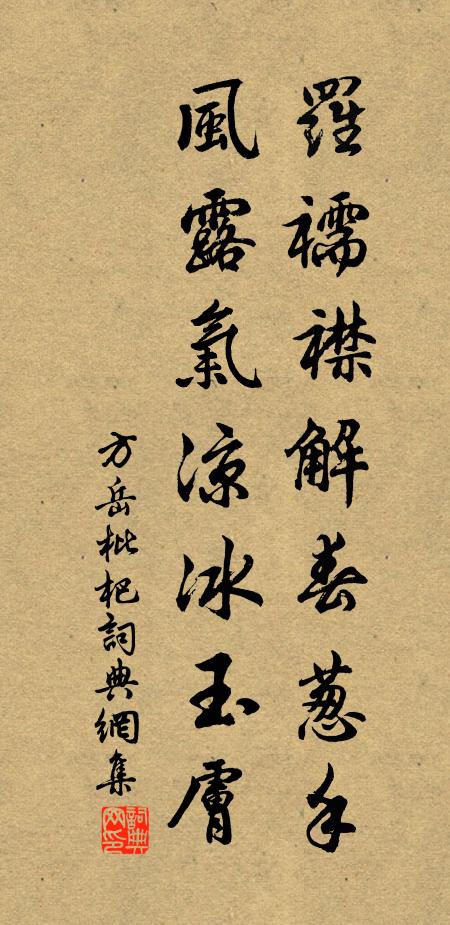 羅襦襟解春葱手
風露氣涼冰玉膚
方岳枇杷詞典網集
詞典网印